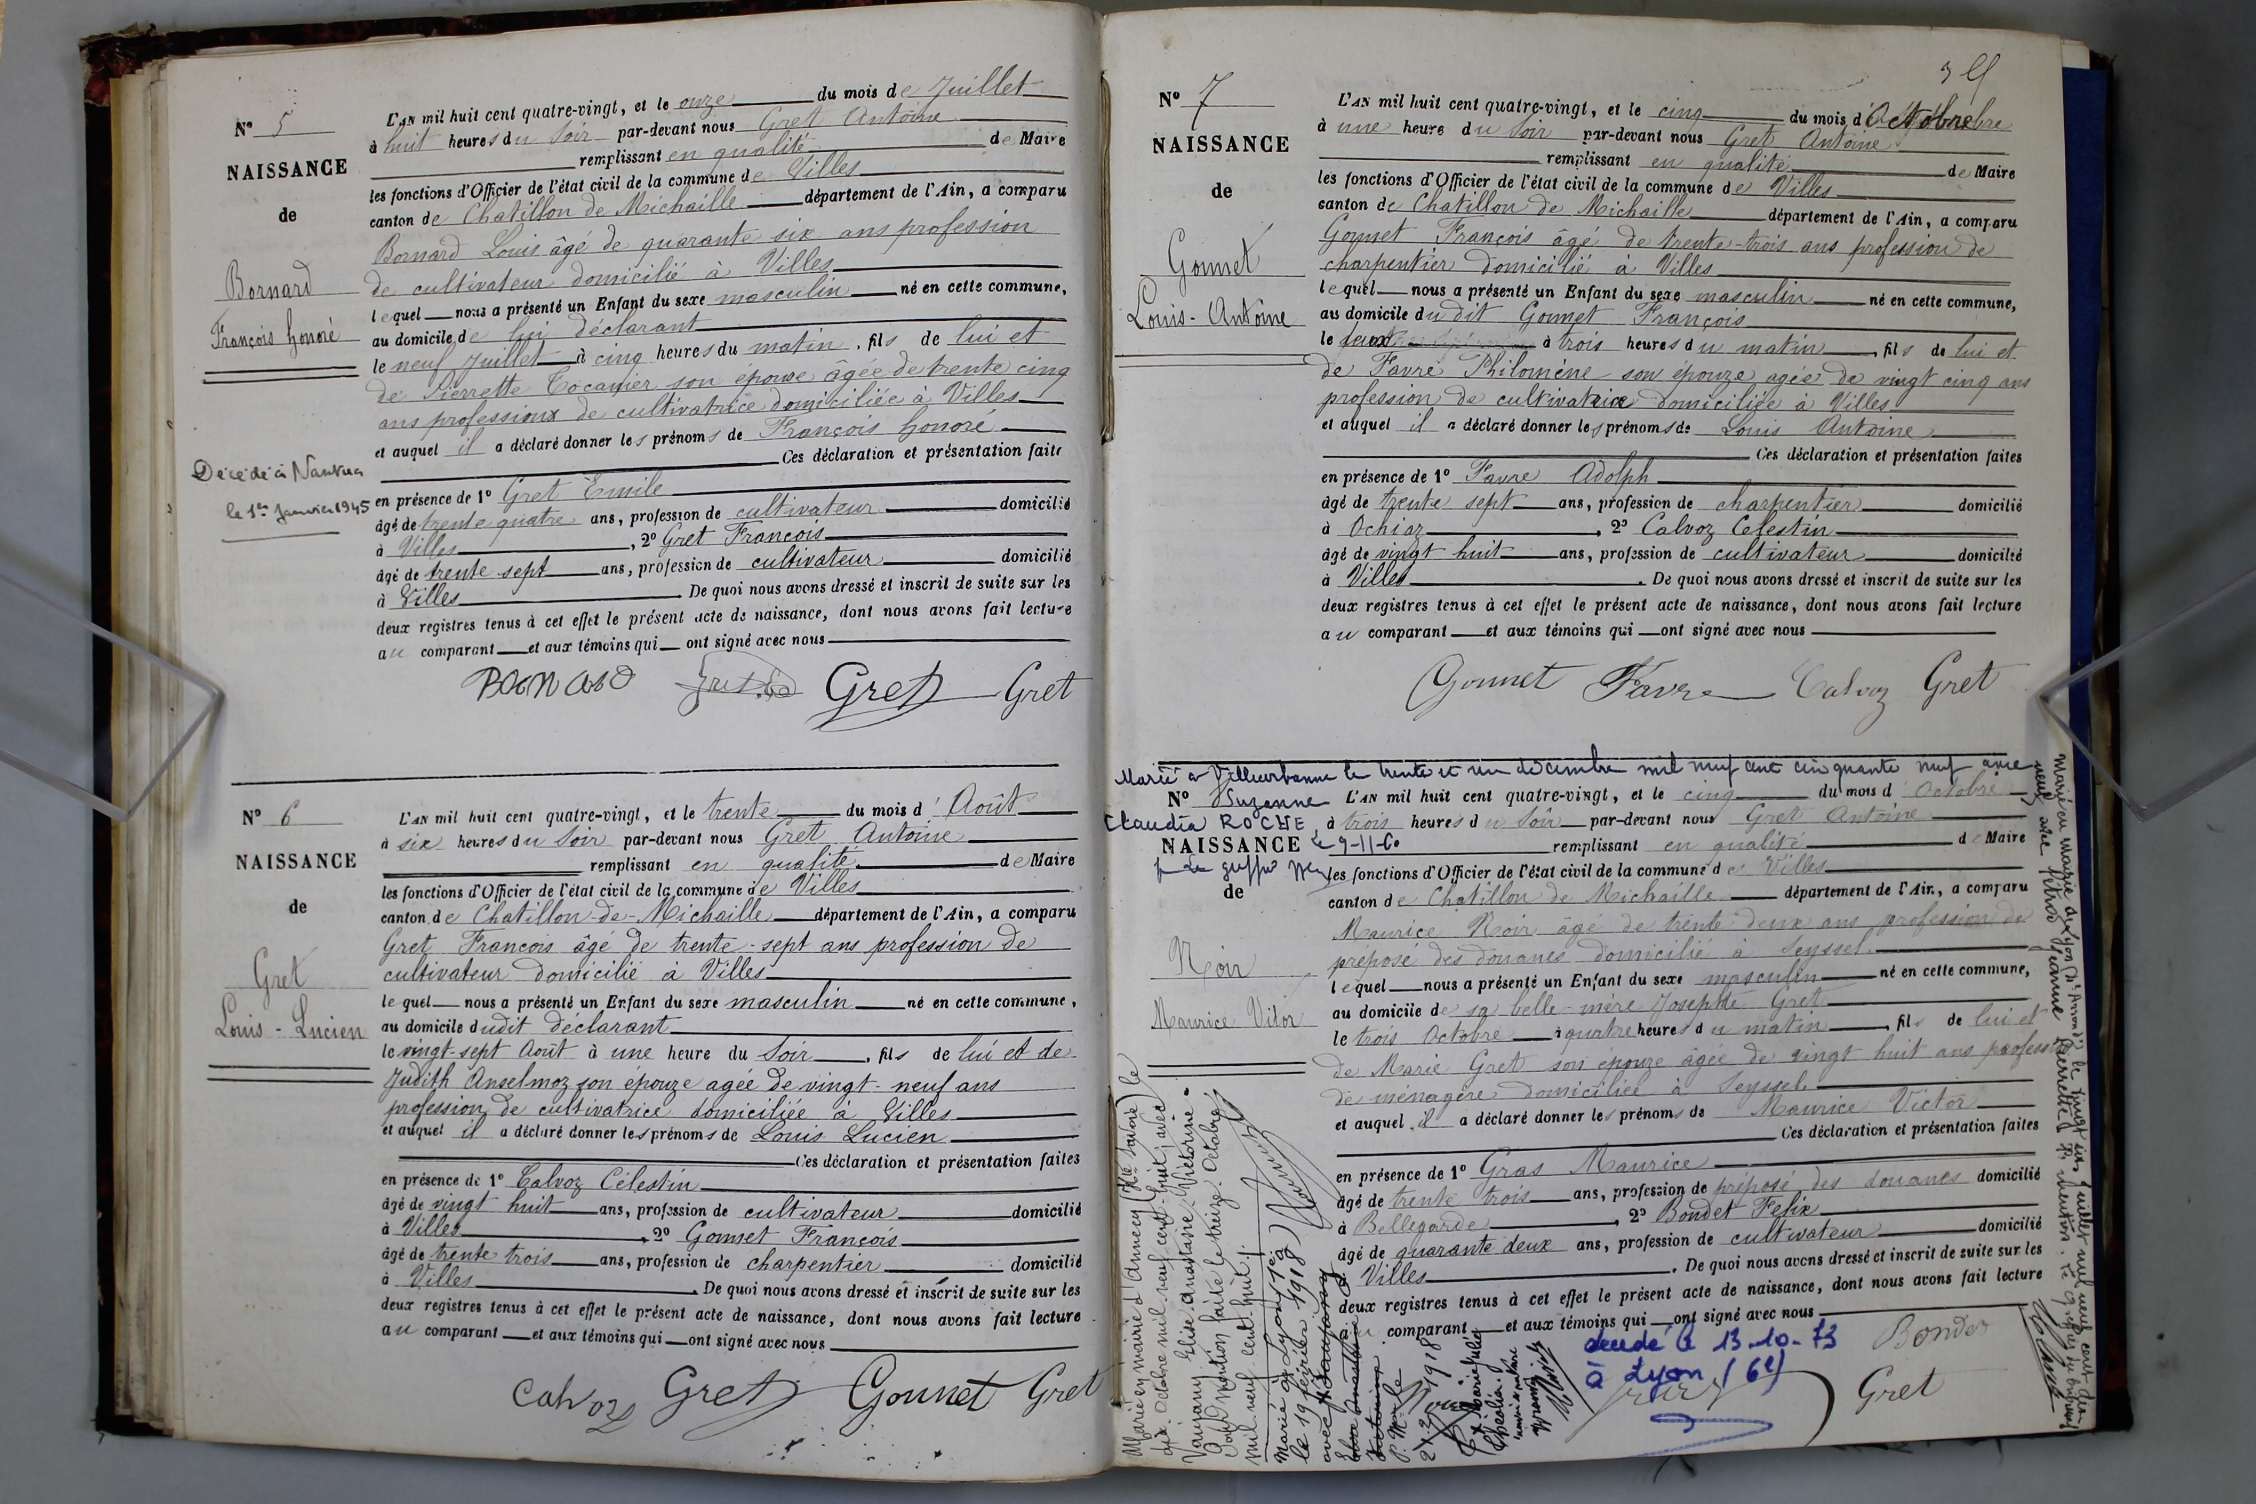 N° 5
NAISSANCE
de
Bornard
François honoré
Décédé à Nantua
le 1er Janvier 1945
L'AN mil huit cent quatre-vingt, et le onze du mois de Juillet
à huit heures du Soir par-devant nous Gret Antoine
remplissant en qualité de Maire
les fonctions d'Officier de l'état civil de la commune de Villes
canton de Chatillon de Michaille département de l'Ain, a comparu
Bornard Louis âgé de quarante six ans profession
de cultivateur domicilié à Villes
lequel nous a présenté un Enfant du sexe masculin né en cette commune,
au domicile de lui déclarant
le neuf Juillet à cinq heures du matin, fils de lui et
de Pierrette son épouse âgée de trente cinq
ans professions de cultivatrice domiciliée à Villes
et auquel il a déclaré donner les prénoms de François honoré
Ces déclaration et présentation faite
en présence de 1° Gret Emile
âgé de trente quatre ans, profession de cultivateur domicilié
à Villes, 2° Gret François
âgé de trente sept ans, profession de cultivateur domicilié
à Villes De quoi nous avons dressé et inscrit de suite sur les
deux registres tenus à cet effet le présent acte de naissance, dont nous avons fait lecture
au comparant et aux témoins qui ont signé avec nous
Gret Gret
N° 6
NAISSANCE
de
Gret
Louis-Lucien
L'AN mil huit cent quatre-vingt, et le trente du mois d' Août
à six heures du Soir par-devant nous Gret Antoine
remplissant en qualité de Maire
les fonctions d'Officier de l'état civil de la commune de Villes
canton de Chatillon-de-Michaille département de l'Ain, a comparu
Gret François âgé de trente-sept ans profession de
cultivateur domicilié à Villes
lequel nous a présenté un Enfant du sexe masculin né en cette commune,
au domicile dudit déclarant
le vingt-sept Août à une heure du Soir, fils de lui et de
Judith Anselmoz son épouze agée de vingt-neuf ans
profession de cultivatrice domiciliée à Villes
et auquel il a déclaré donner les prénoms de Louis Lucien
Ces déclaration et présentation faites
en présence de 1° Calvoz Célestin
âgé de vingt huit ans, profession de cultivateur domicilié
à Villes, 2° Gonnet François
âgé de trente trois ans, profession de charpentier domicilié
à Villes De quoi nous avons dressé et inscrit de suite sur les
deux registres tenus à cet effet le présent acte de naissance, dont nous avons fait lecture
au comparant et aux témoins qui ont signé avec nous
Calvoz Gret Gonnet Gret
N° 7
NAISSANCE
de
Gonnet
Louis-Antoine
L'AN mil huit cent quatre-vingt, et le cinq du mois d'Octobre
à une heure du Soir par-devant nous Gret Antoine
remplissant en qualité de Maire
les fonctions d'Officier de l'état civil de la commune de Villes
canton de Chatillon de Michaille département de l'Ain, a comparu
Gonnet François âgé de trente-trois ans profession de
charpentier domicilié à Villes
lequel nous a présenté un Enfant du sexe masculin né en cette commune,
au domicile dudit Gonnet François
le à trois heures du matin, fils de lui et
de Favre Philomène son épouze agée de vingt cinq ans
profession de cultivatrice domiciliée à Villes
et auquel il a déclaré donner les prénoms de Louis Antoine
Ces déclaration et présentation faites
en présence de 1° Favre Adolph
âgé de trente sept ans, profession de charpentier domicilié
à Ochiaz, 2° Calvoz Celestin
âgé de vingt huit ans, profession de cultivateur domicilié
à Villes. De quoi nous avons dressé et inscrit de suite sur les
deux registres tenus à cet effet le présent acte de naissance, dont nous avons fait lecture
au comparant et aux témoins qui ont signé avec nous
Gonnet Favre Calvoz Gret
Marié à Villeurbanne le trente et un décembre mil neuf cent cinquante neuf avec
Suzanne
Claudia ROCHE, le 9-11-60
N°
NAISSANCE
de
Noir
Maurice Vitor
L'AN mil huit cent quatre-vingt, et le cinq du mois d'Octobre
à trois heures du Soir par-devant nous Gret Antoine
remplissant en qualité de Maire
les fonctions d'Officier de l'état civil de la commune de Villes
canton de Chatillon de Michaille département de l'Ain, a comparu
Maurice Noir âgé de trente-deux ans profession de
préposé des douanes domicilié à Seyssel
lequel nous a présenté un Enfant du sexe masculin né en cette commune,
au domicile de sa belle-mère Josephte Gret
le trois Octobre à quatre heures du matin, fils de lui et
de Marie Gret son épouze âgée de vingt huit ans profession
de ménagère domiciliée à Seyssel
et auquel il a déclaré donner les prénoms de Maurice Victor
Ces déclaration et présentation faites
en présence de 1° Gras Maurice
âgé de trente trois ans, profession de préposé des douanes domicilié
à Bellegarde, 2° Bondet Felix
âgé de quarante deux ans, profession de cultivateur domicilié
à Villes. De quoi nous avons dressé et inscrit de suite sur les
deux registres tenus à cet effet le présent acte de naissance, dont nous avons fait lecture
au comparant et aux témoins qui ont signé avec nous
décédé le 13-10-73
à Lyon (6e)
Bondet
Gret
Marié en mairie d'Annecy (Hte Savoie) le
dix octobre mil neuf cent huit, avec
Vaujany Elise Anastasie Victorine.
Dont mention faite le treize Octobre
mil neuf cent huit.
Marié à Lyon
le 19 février 1918
avec